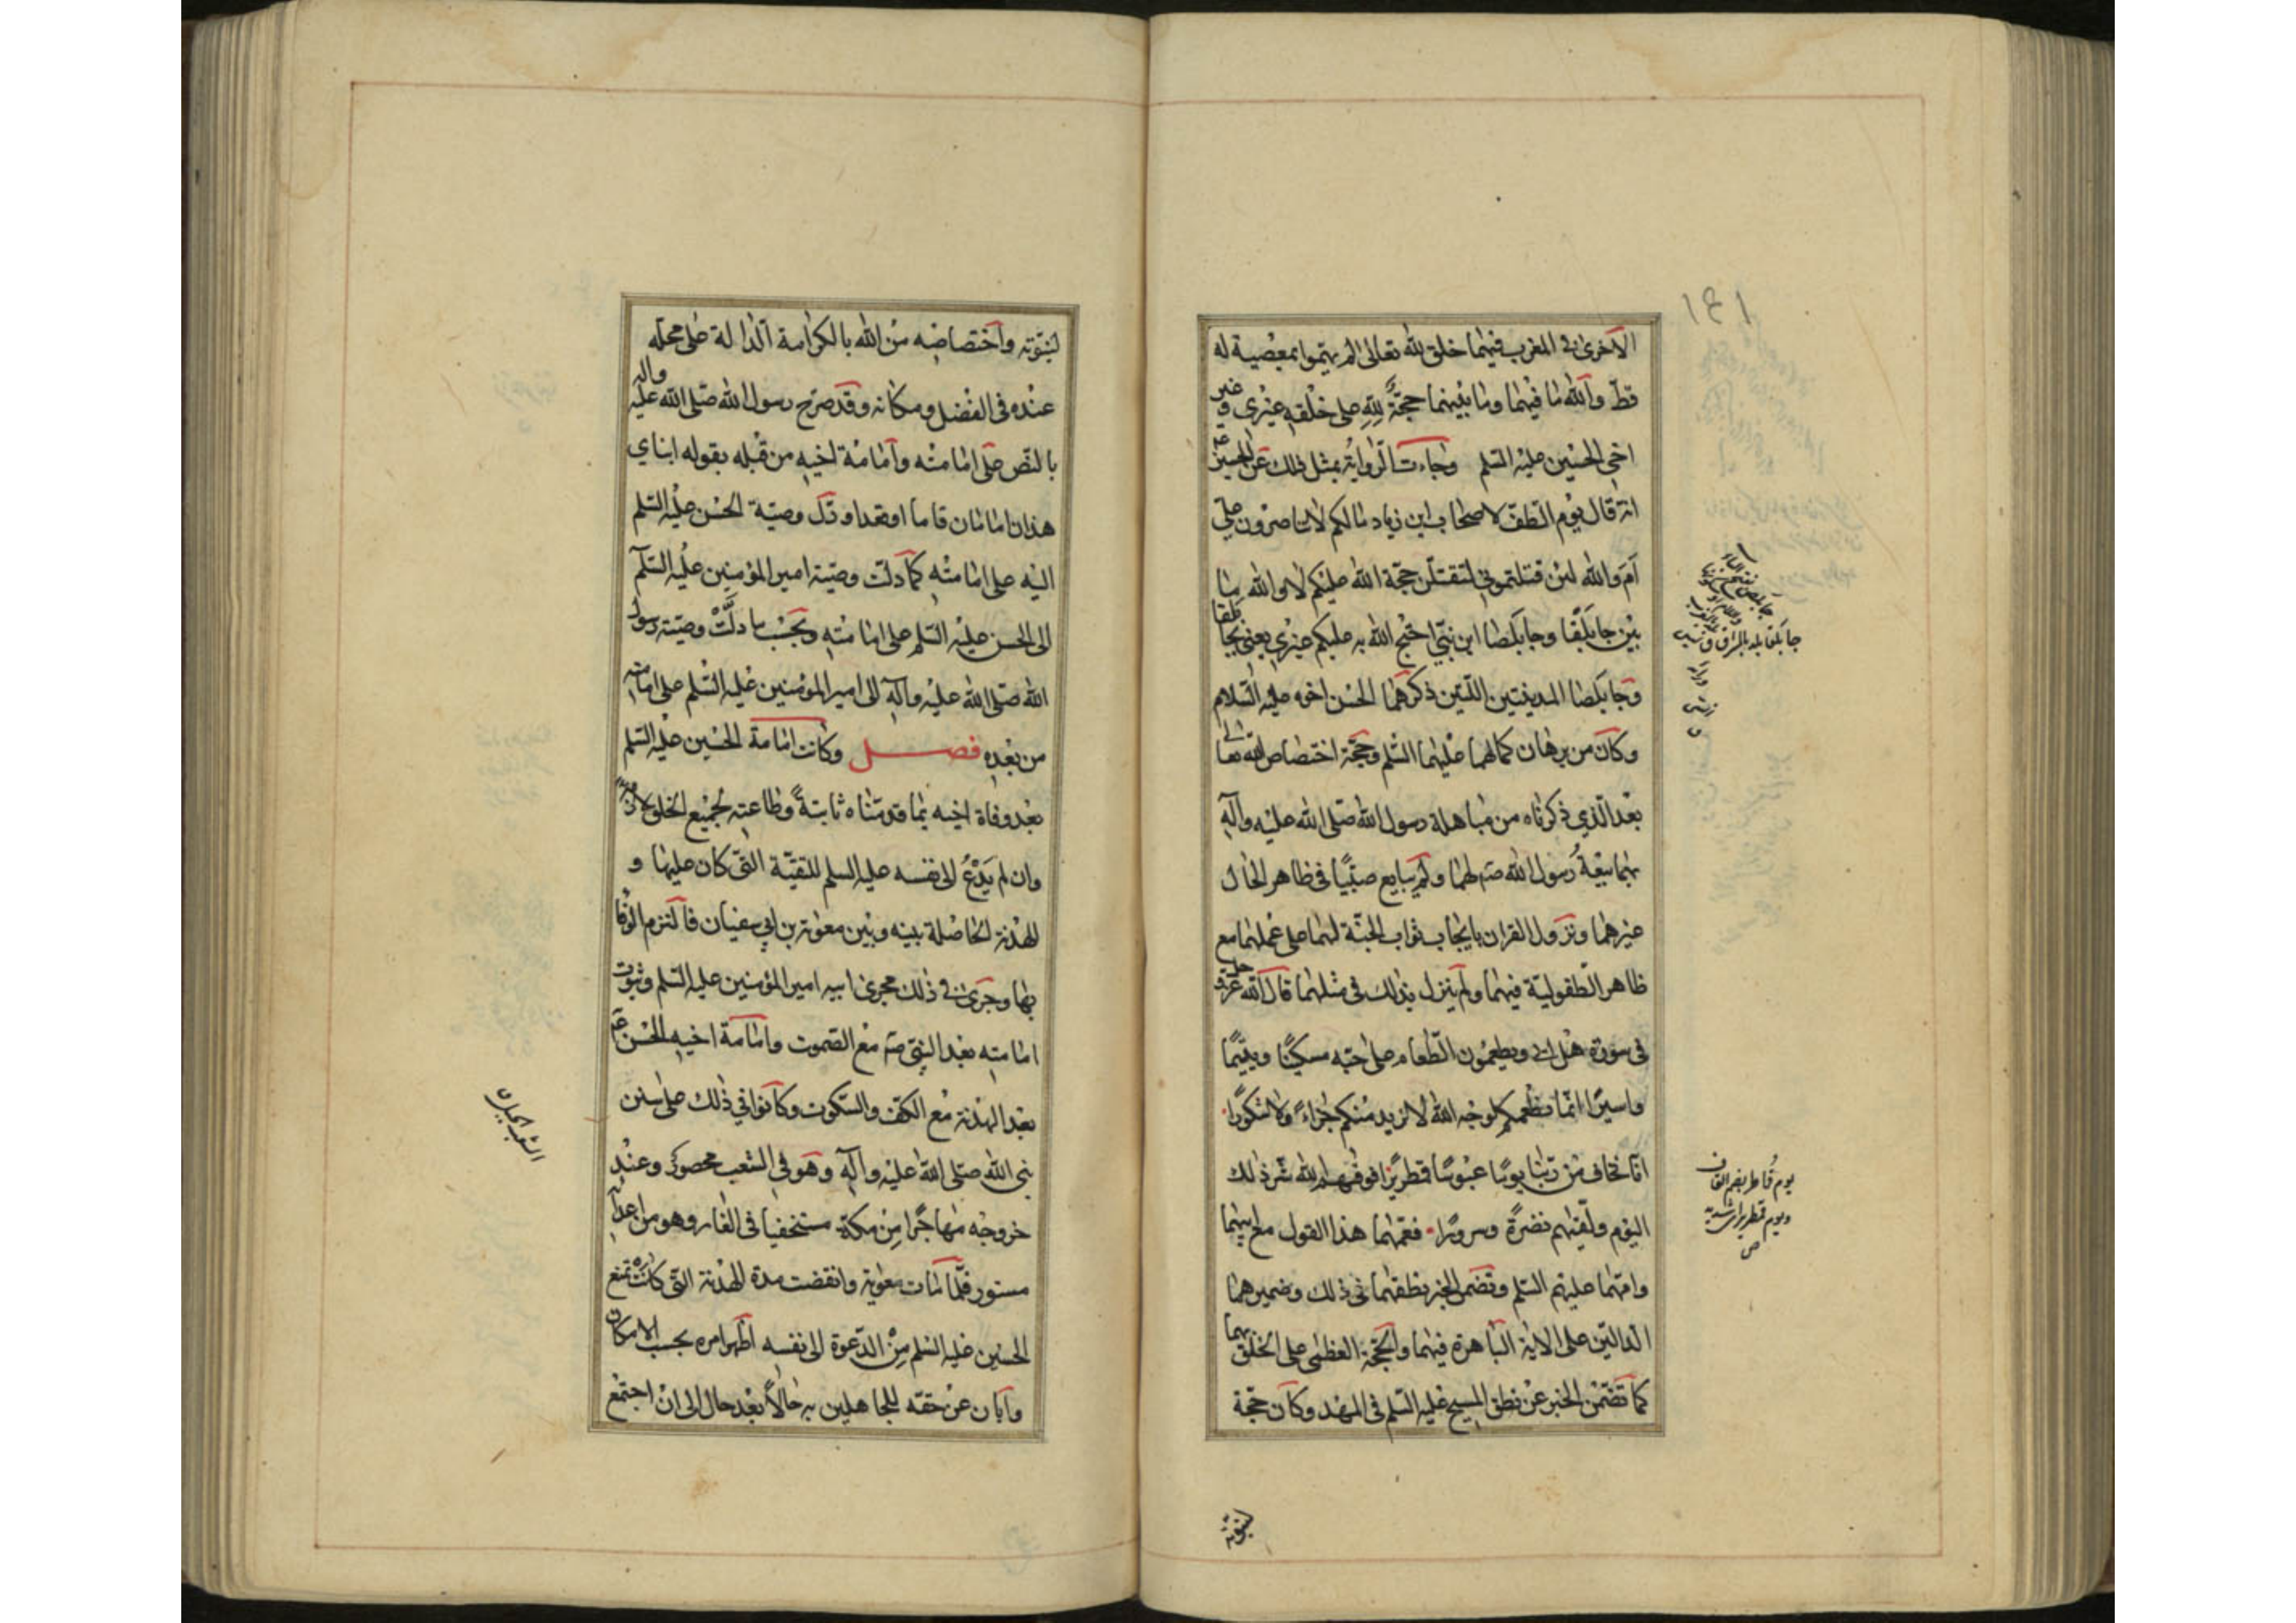 ١٤١
الاخرى في المغرب فيهما خلق لله تعالى لم يهمّوا بمعصية له
قطّ والله ما فيهما وما بينهما حجّةٌ لِلّهِ على خلقه غيري و غير
اخي الحسين عليه السّلم وجاءت الرّواية بمثل ذلك عن الحسين ع
انه قال يوم الطّفّ لاصحاب ابن زياد مالكم لا تناصرون عليّ
اَمَ والله لئن قتلتموني لتقتلُن حجّة الله عليكم لا والله ما
بين جابَلْقا وجابَلصا ابن نبيّ احتج الله به عليكم غيري يعني بجابلقا
وجابَلصا المدينتين اللّتين ذكرهما الحسن اخوه عليه السّلام
وكان من برهان كمالهما عليهما السّلم وحجّة اختصاص الله تعالى
بعد الّذي ذكرناه من مباهلة رسول الله صلّى الله عليه وآله
بهما بيعةُ رسول الله صم لهما ولم يبايع صبيًّا في ظاهر الحال
غيرهما ونزول القران بايجاب ثواب الجنّة لهما على عملهما مع
ظاهر الطّفوليّة فيهما ولم ينزل بذلك في مثلهما قال الله عزّ و جل
في سورة هل اتى ويطعمون الطّعام على حبّه مسكينًا ويتيمًا
واسيرًا انّما نطعمكم لوجه الله لا نريد منكم جزاءً ولا شكورًا
انّا نخاف من ربّنا يومًا عبوسًا قمطريرًا فوقيهم الله شرّ ذلك
اليوم ولقّيهم نضرةً وسرورًا فعمّهما هذا القول مع ابيهما
وامّهما عليهم السّلم وتضمن الخبر نطقهما في ذلك وضميرهما
الدالّين على الاية الباهرة فيهما والحجّة العظمى على الخلق بهما
كما تضمّن الخبر عن نطق المسيح عليه السّلم في المهد وكان حجّة
جابلقا بلد بالمشرق
يوم قُماطر بضم القاف
ويوم قمطرير اى شديد
ص
لنبوّته
لنبوّته واختصاصه من الله بالكرامة الدّالة على محلّه
عنده في الفضل ومكانه وقد صرّح رسول الله صلّى الله عليه واله
بالنّص على امامته وامامة اخيه من قبله بقوله ابناي
هذان امامان قاما او قعدا ودلّ وصيّة الحسن عليه السّلم
اليه على امامته كما دلّت وصيّة امير المؤمنين عليه السّلم
الى الحسن عليه السّلم على امامته وبحسب ما دلَّتْ وصيّة رسول
الله صلّى الله عليه وآله الى امير المؤمنين عليه السّلم على امامته
من بعده فصل وكانت امامة الحسين عليه السّلم
بعد وفاة اخيه بما قدمناه ثابتةً وطاعته لجميع الخلق لازمة
وان لم يَدْعُ الى نفسه عليه السلم للتقيّة التي كان عليها و
الهدنة الحاصلة بينه وبين معوية بن ابي سفيان فالتزم الوفا
بها وجرى في ذلك مجرى ابيه امير المؤمنين عليه السّلم وثبوت
امامته بعد النبيّ صم مع الصّموت وامامة اخيه الحسن ع
بعد الهدنة مع الكفّ والسّكوت وكانوا في ذلك على سنن
نبي الله صلّى الله عليه وآله وهو في الشعب محصور وعند
خروجه مهاجرًا مِن مكة مستخفيا في الغار وهو من اعدائه
مستور فلمّا مات معوية وانقضت مدة الهدنة التّي كانتْ تمنع
الحسين عليه السّلم مِن الدّعوة الى نفسه اظهر امره بحسب الامكان
وآبان عن حقّه للجاهلين به حالاً بعد حال الى ان اجتمع